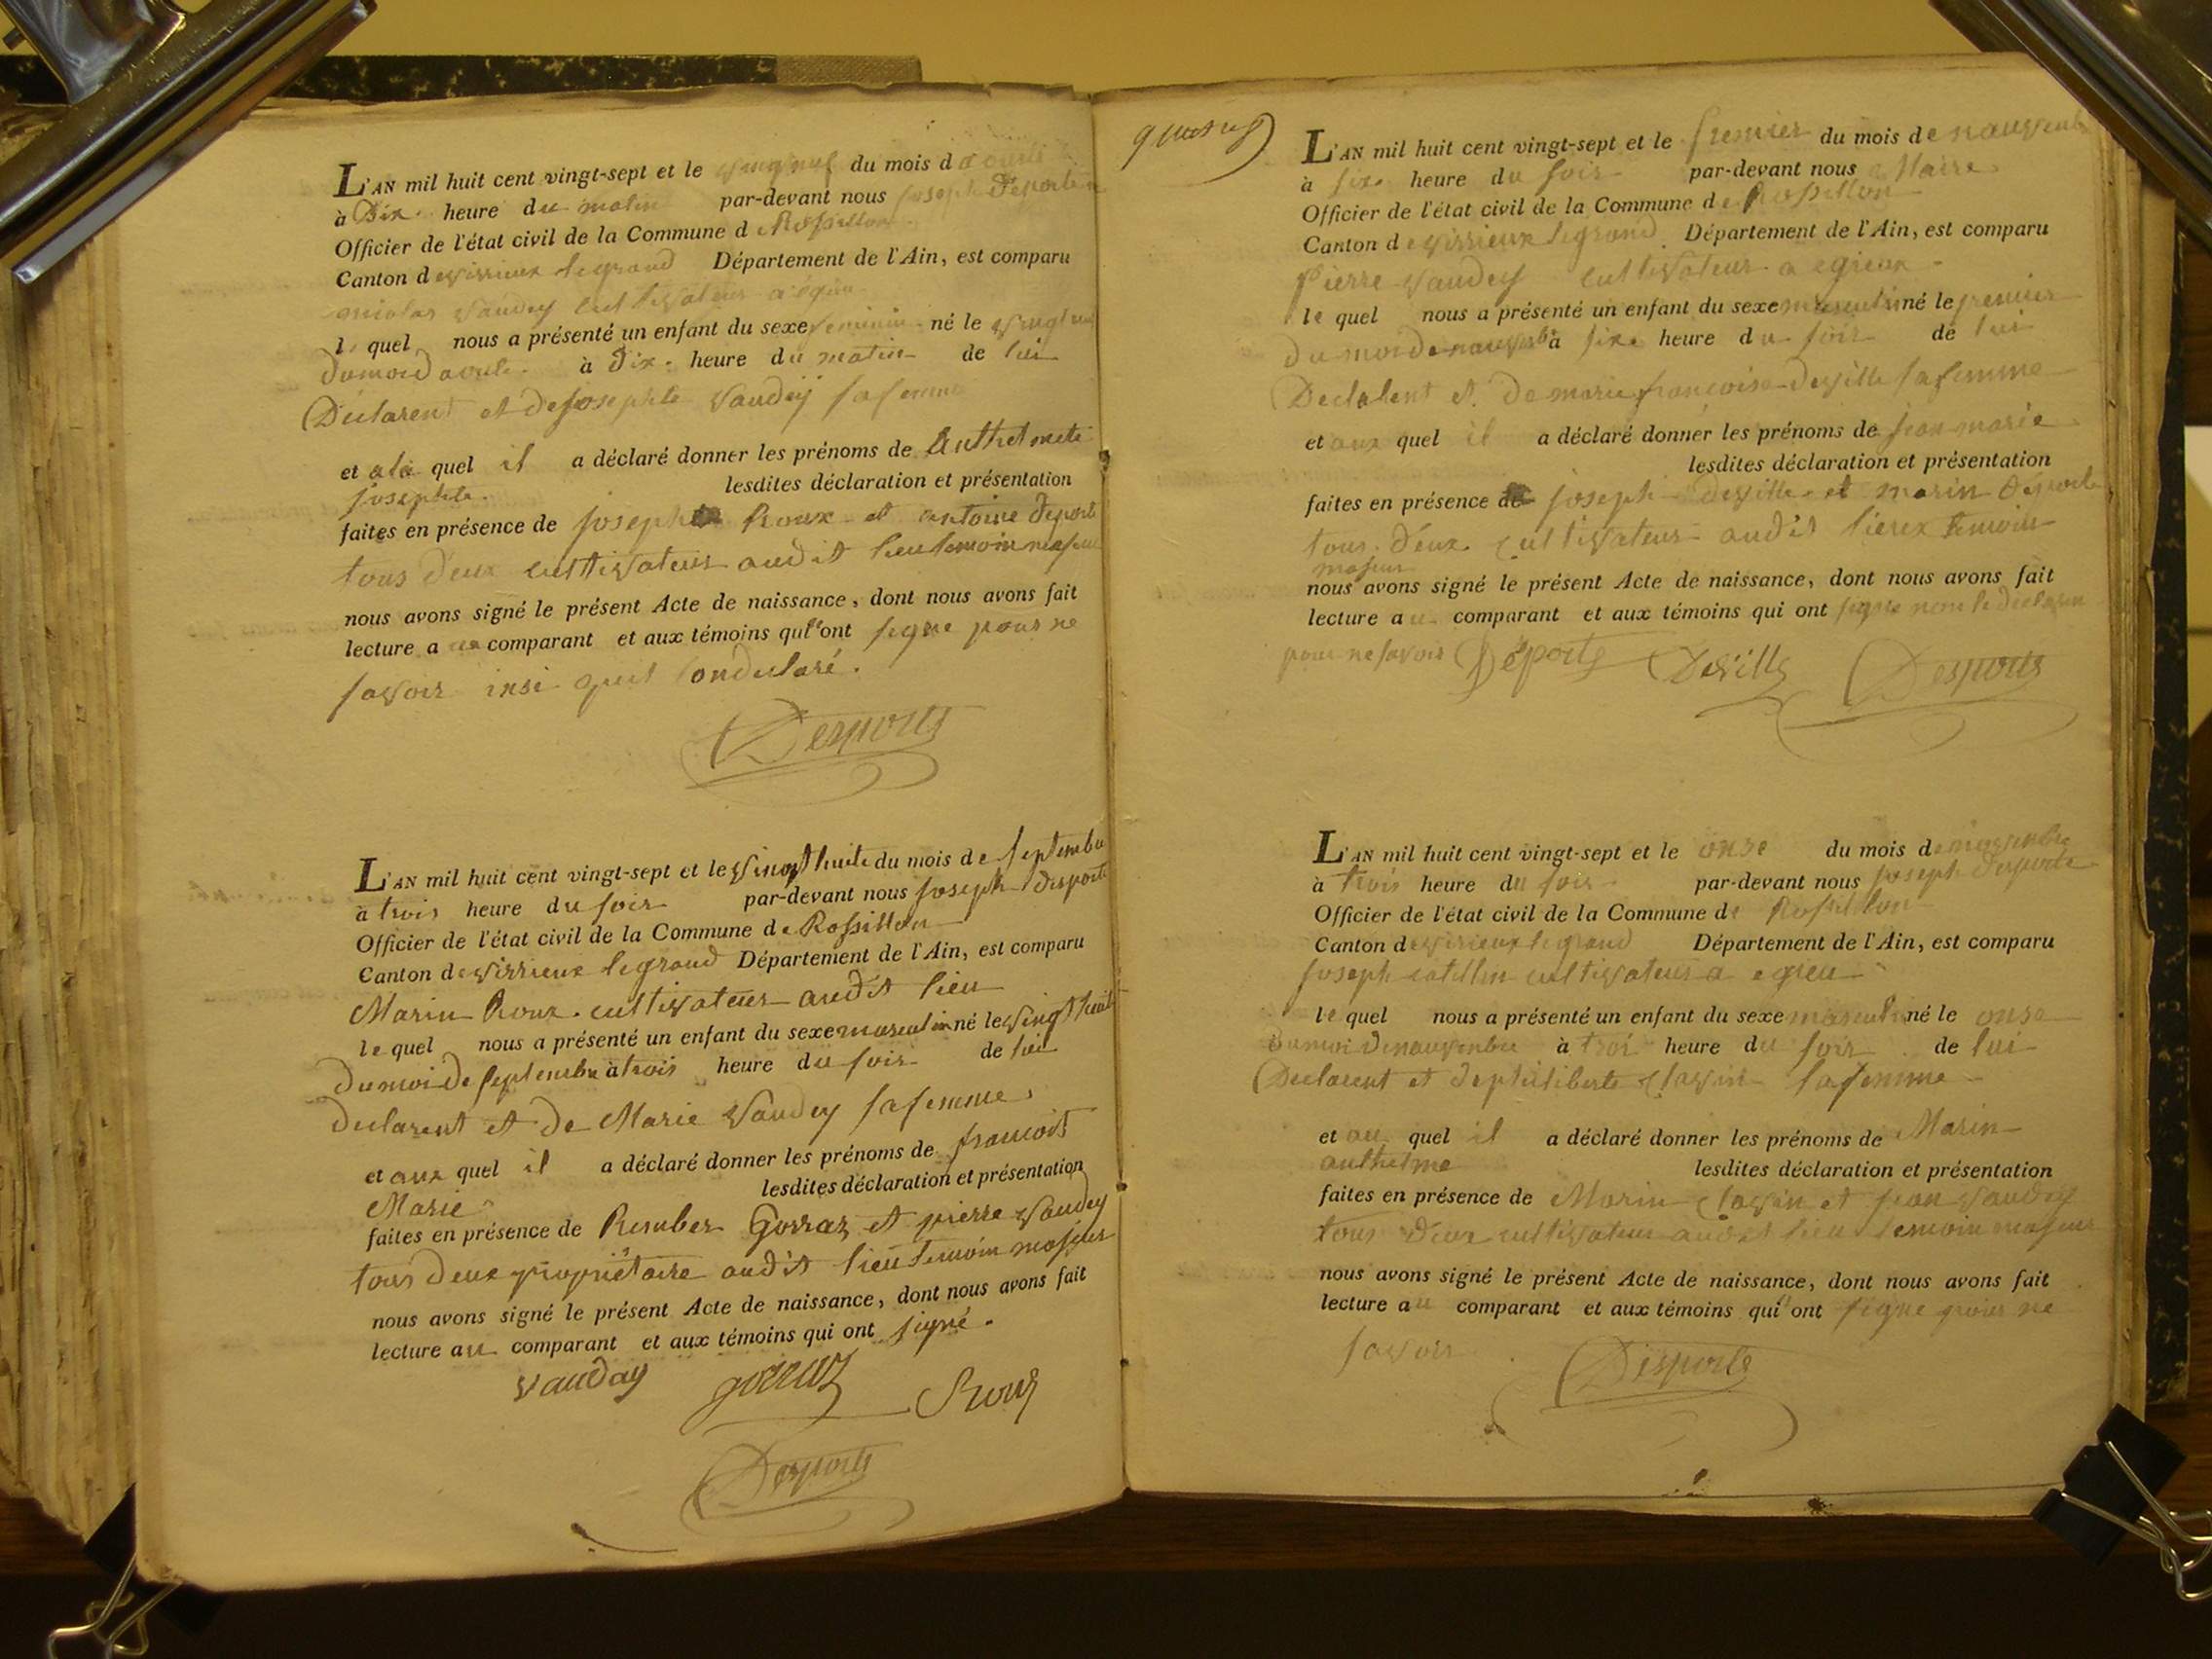 L'AN mil huit cent vingt-sept et le du mois d
à Dix heure du matin par-devant nous joseph Deporte
Officier de l'état civil de la Commune de Rossillon
Canton de virrieux legrand Département de l'Ain, est comparu
nicolas vaudey cultivateur a égieu
le quel nous a présenté un enfant du sexe feminin né le
dumoid aoute à Dix heure du matin de lui
Déclarent et de josephte vaudey sa femme
et ala quel il a déclaré donner les prénoms de Anthelmete
josephte. lesdites déclaration et présentation
faites en présence de joseph Roux et antoine deporte
tous deux cultivateur audit lieu temoin majeur
nous avons signé le présent Acte de naissance, dont nous avons fait
lecture au comparant et aux témoins qui ont signe pour ne
savoir insi quil ondeclaré.
Desporte
L'AN mil huit cent vingt-sept et le vingt huite du mois de septembre
à trois heure du soir par-devant nous joseph desporte
Officier de l'état civil de la Commune de Rossillon
Canton de virrieux legrand Département de l'Ain, est comparu
Marin Roux cultivateur audit lieu
le quel nous a présenté un enfant du sexe masculin né le vingt huit
dumoi de septembre à trois heure du soir de lui
declarent et de Marie vaudey sa femme
et aux quel il a déclaré donner les prénoms de francois
Marie lesdites déclaration et présentation
faites en présence de Rember Gorraz et pierre vaudey
tous deux propriètaire audit lieu temoin majeur
nous avons signé le présent Acte de naissance, dont nous avons fait
lecture au comparant et aux témoins qui ont signé.
vauday gorraz Roux
Desporte
L'AN mil huit cent vingt-sept et le premier du mois de nauvembre
à six heure du soir par-devant nous Maire
Officier de l'état civil de la Commune de Rossillon
Canton de virrieux legrand Département de l'Ain, est comparu
Pierre vaudey cultivateur a egieux
le quel nous a présenté un enfant du sexe masculin né le premier
du moi de nauvembre à six heure du soir de lui
Declalent et de marie francoise deville sa femme
et aux quel il a déclaré donner les prénoms de jean marie
lesdites déclaration et présentation
faites en présence de joseph deville et marin deporte
tous deux cultivateur audit lieux temoin
majeur
nous avons signé le présent Acte de naissance, dont nous avons fait
lecture au comparant et aux témoins qui ont signe non le declaren
pour ne savoir Déporte Deville Desporte
L'AN mil huit cent vingt-sept et le onse du mois de nauvembre
à trois heure du soir par-devant nous joseph desporte
Officier de l'état civil de la Commune de Rossillon
Canton de virieux legrand Département de l'Ain, est comparu
joseph catillin cultivateur a egieu
le quel nous a présenté un enfant du sexe masculin né le onse
dumoi denauvembre à troi heure du soir de lui
Declarent et dephiliberte Clavin sa femme
et au quel il a déclaré donner les prénoms de Marin
anthelme lesdites déclaration et présentation
faites en présence de Marin Clavin et jean vaudey
tous deux cultivateur audit lieu temoin majeur
nous avons signé le présent Acte de naissance, dont nous avons fait
lecture au comparant et aux témoins qui ont signe pour ne
savoir
Desporte